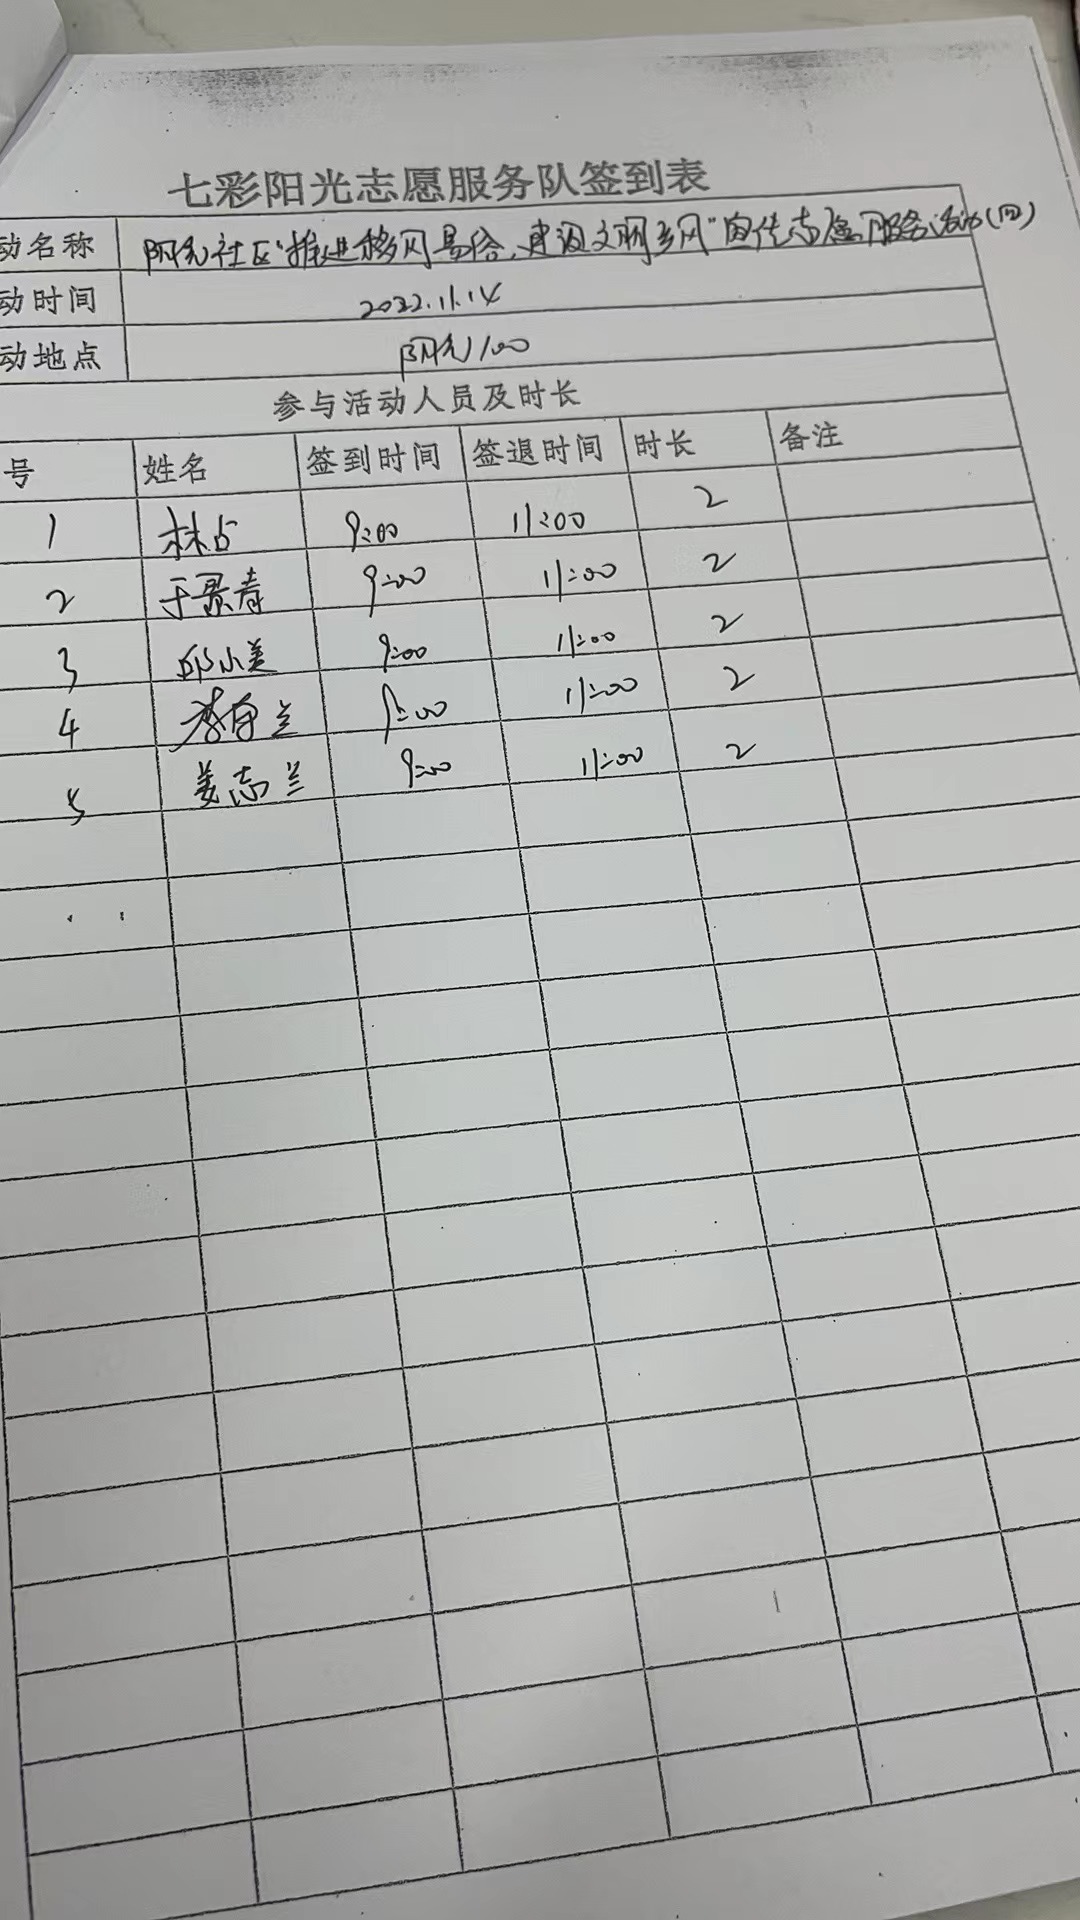 七彩阳光志愿服务队签到表
动名称 阳光社区“推进移风易俗、建设文明乡风”宣传志愿服务活动(四)
动时间 2022.11.14
动地点 阳光100
参与活动人员及时长
号 姓名 签到时间 签退时间 时长 备注
1 林占 9:00 11:00 2
2 于景春 9:00 11:00 2
3 邱小美 9:00 11:00 2
4 兰 9:00 11:00 2
5 姜志兰 9:00 11:00 2